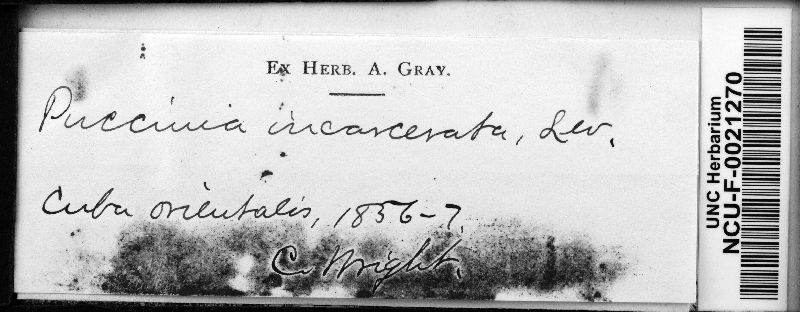 Ex Herb. A. Gray.
Puccinia incarcerata, Lev.
Cuba orientalis, 1856-7.
C. Wright.
UNC Herbarium
NCU-F-0021270